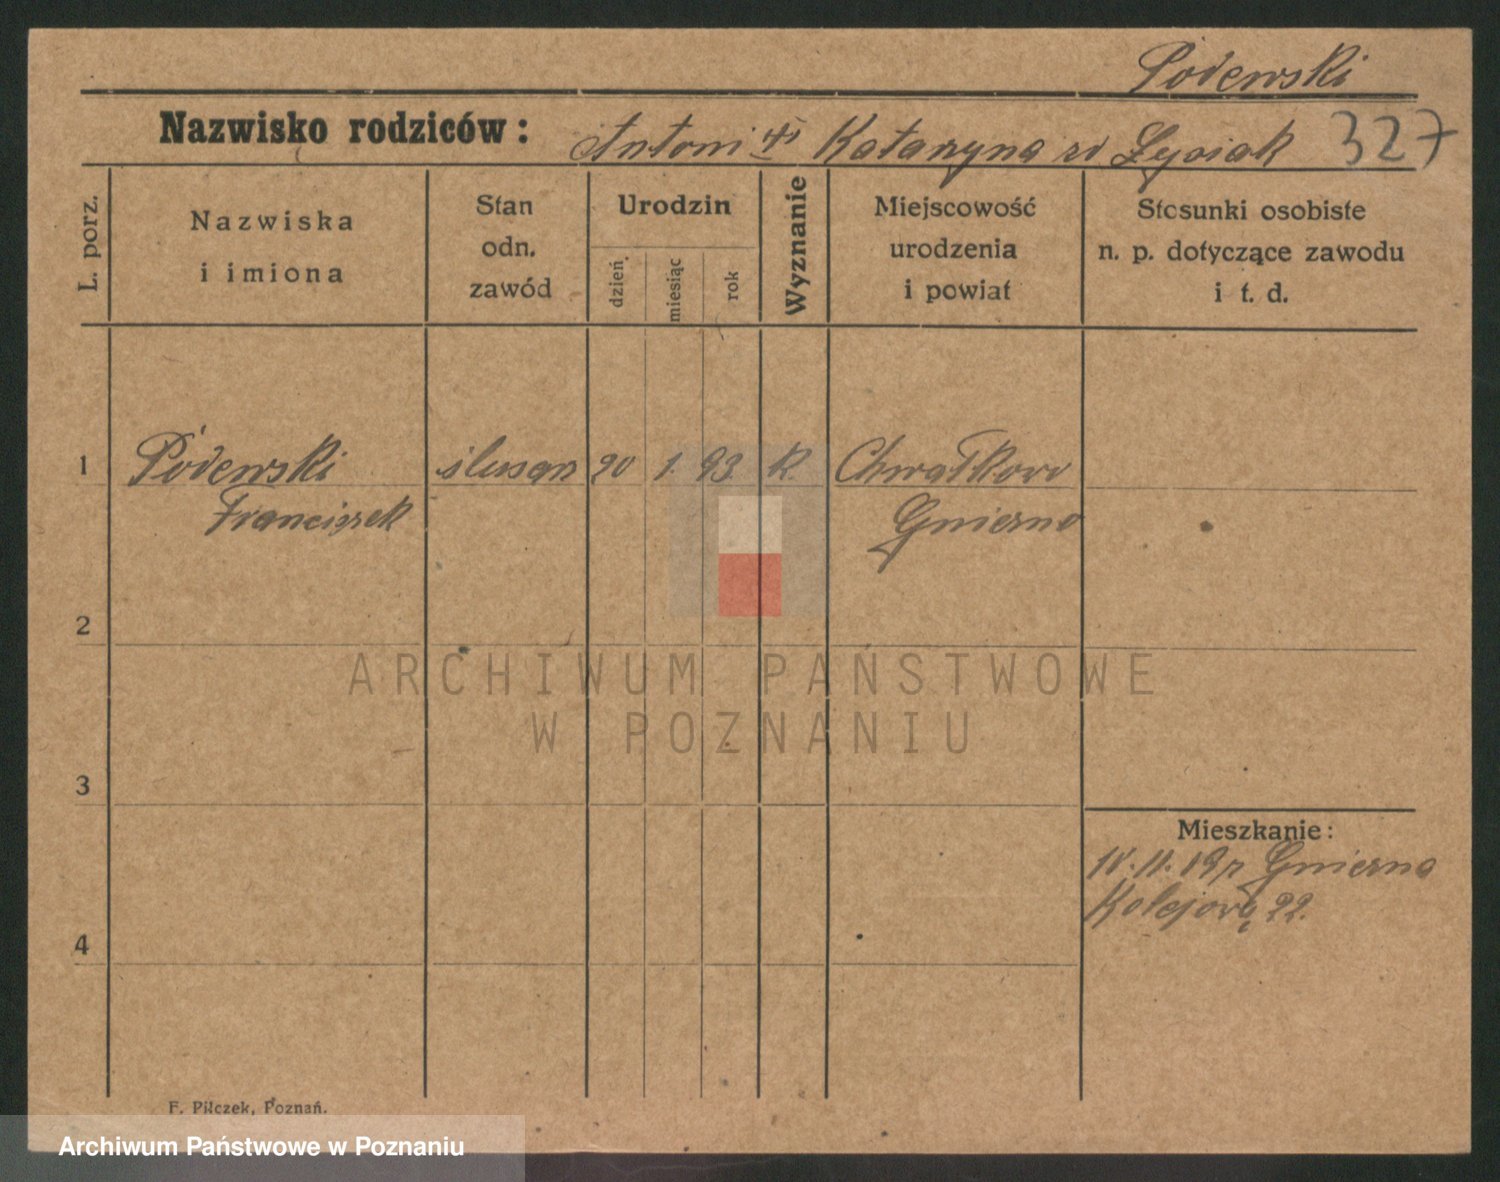 Podewski
Nazwisko rodziców: Antoni Katarzyna zd Łysiak 327
L. porz.
Nazwiska
i imiona
Stan
odn.
zawód
Urodzin
dzień
miesiąc
rok
Wyznanie
Miejscowość
urodzenia
i powiat
Stosunki osobiste
n. p. dotyczące zawodu
i t. d.
1 Podewski ślusarz 20 1. 93. K. Chwałkowo
Franciszek Gniezno
2
3
4
Mieszkanie:
Gniezno
Kolejową 22.
F. Pilczek, Poznań.
ARCHIWUM PAŃSTWOWE
W POZNANIU
Archiwum Państwowe w Poznaniu